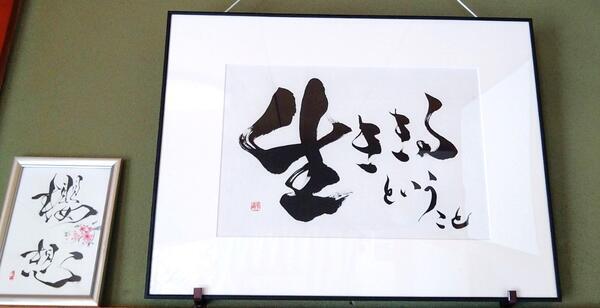 生ききる
ということ
櫻想